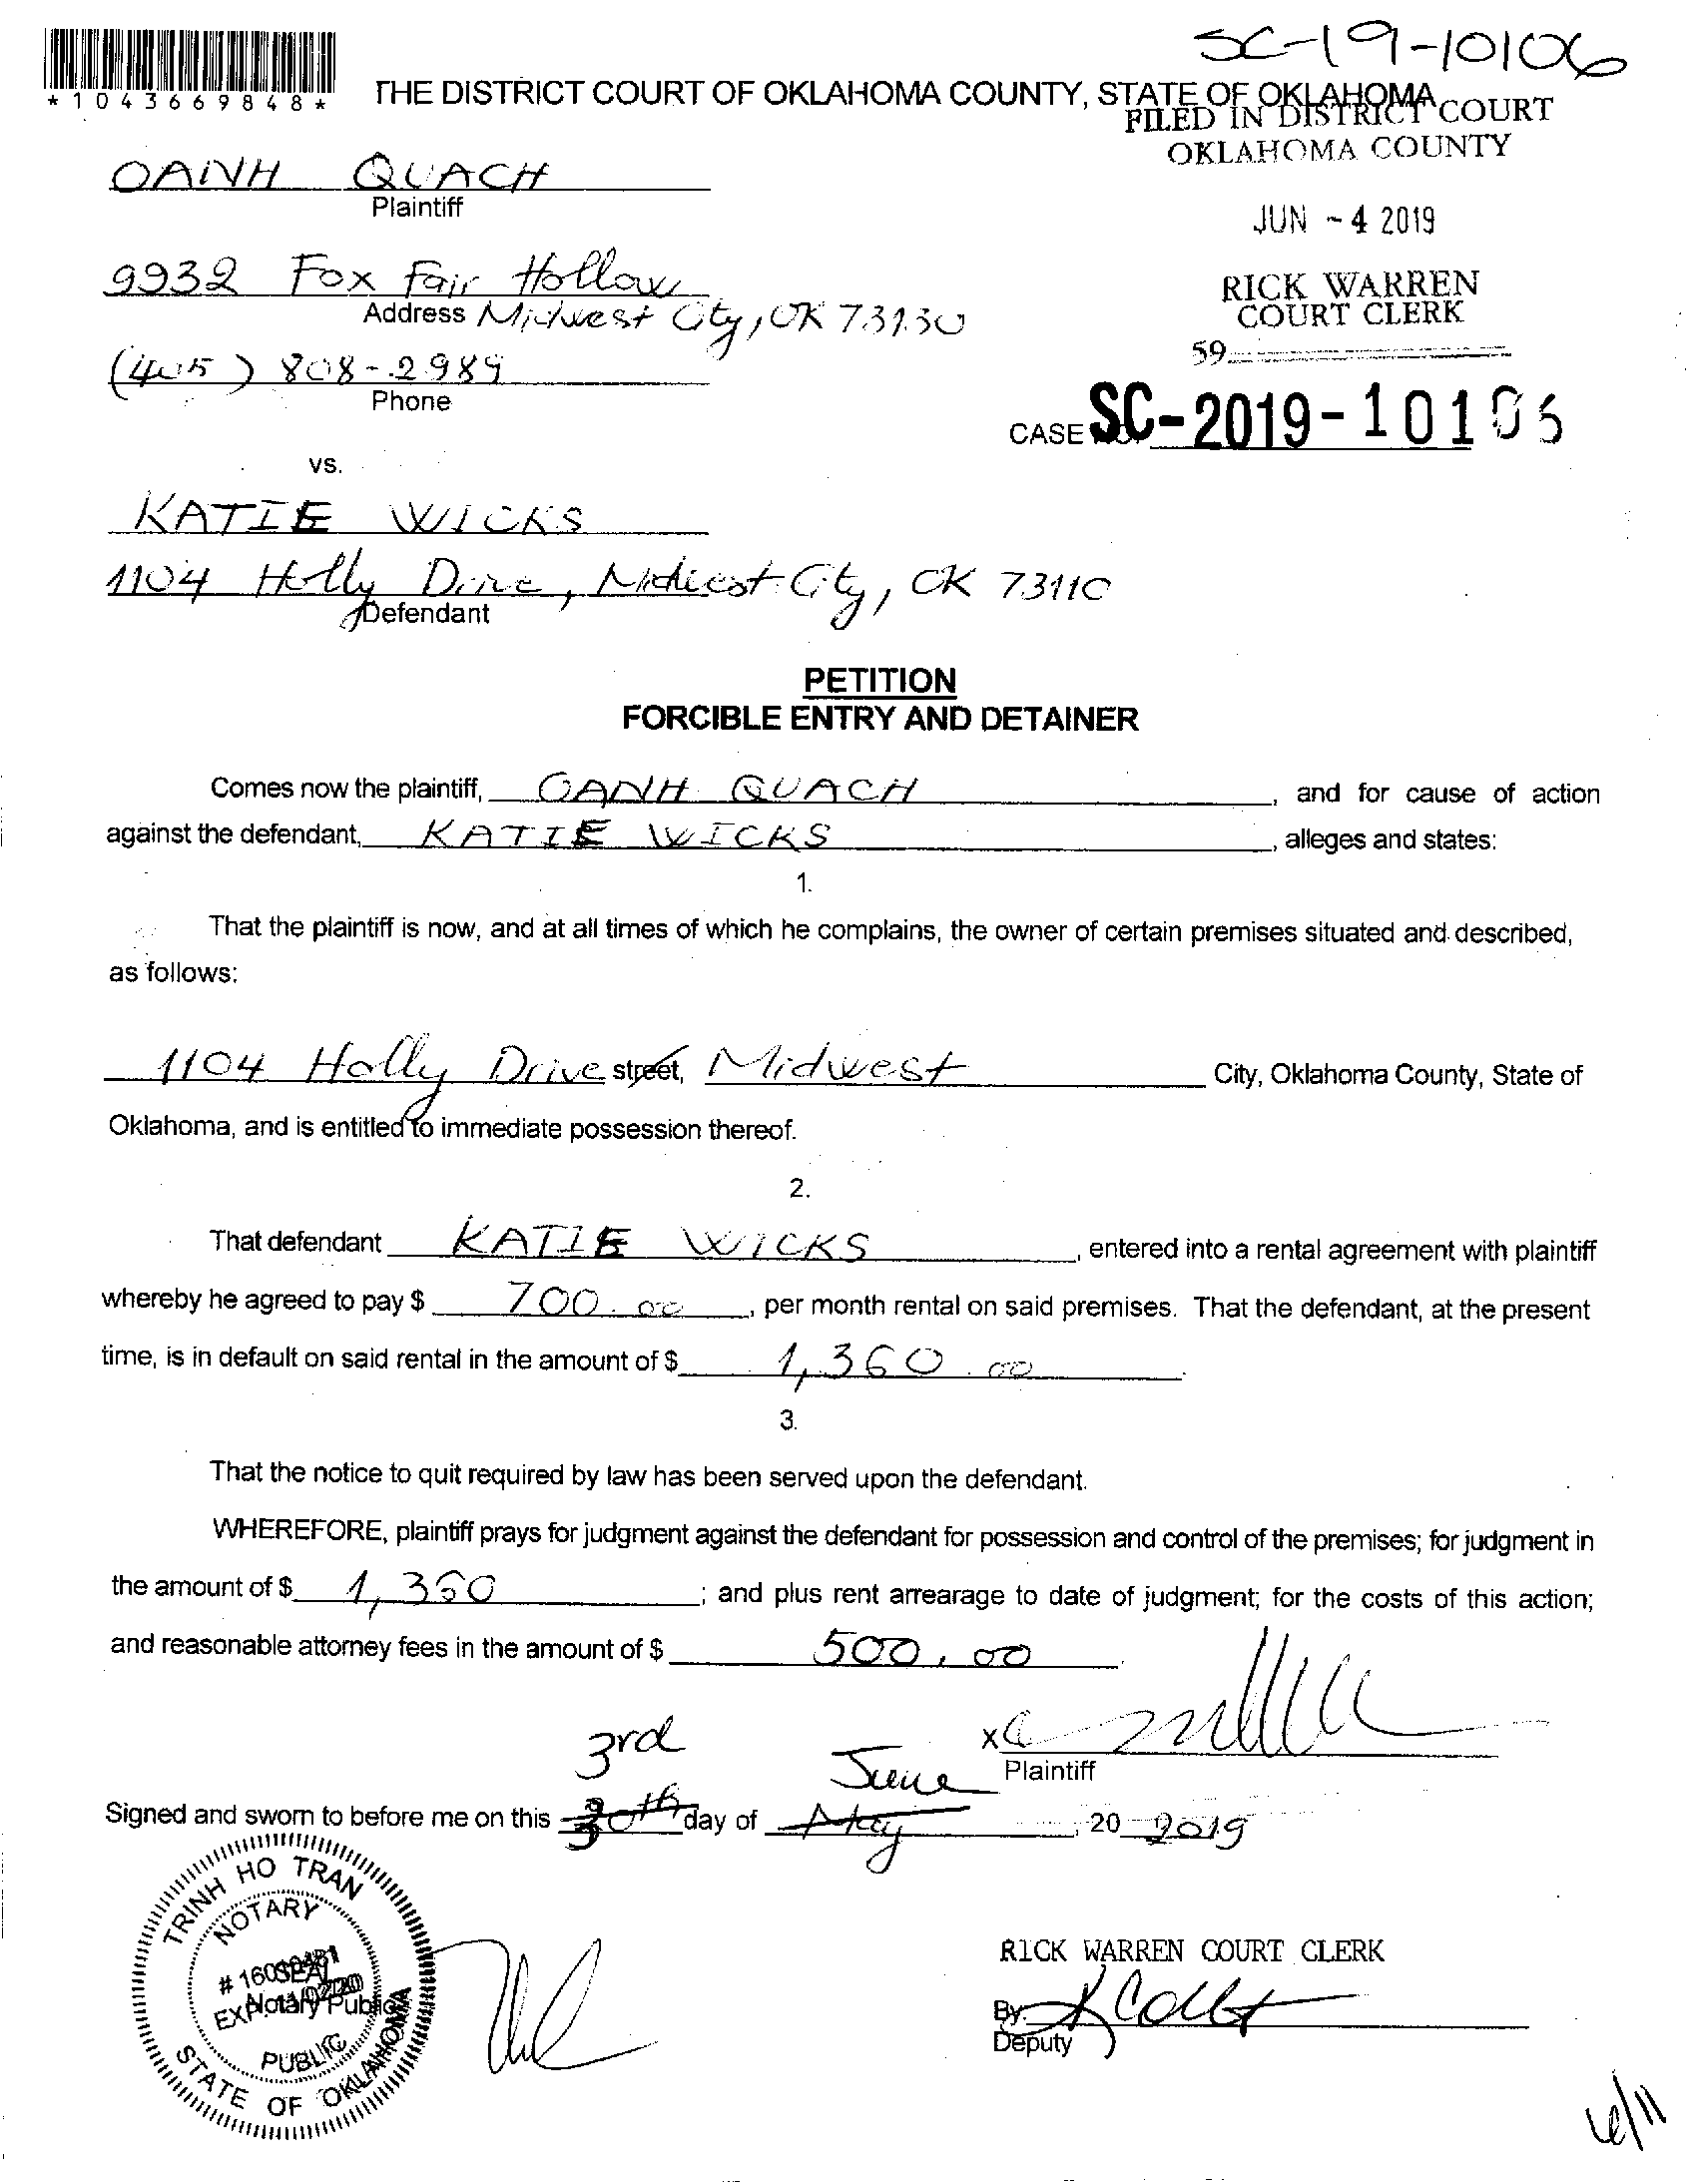 SC-19-10106
*1043669848*
THE DISTRICT COURT OF OKLAHOMA COUNTY, STATE OF OKLAHOMA
FILED IN DISTRICT COURT
OKLAHOMA COUNTY
OANH QUACH
Plaintiff
JUN -4 2019
9932 Fox Fair Hollow
Address Midwest City, OK 73130
RICK WARREN
COURT CLERK
59
(405) 808-2989
Phone
CASE SC-2019-10106
vs.
KATIE WICKS
1104 Holly Drive, Midwest City, OK 73110
Defendant
PETITION
FORCIBLE ENTRY AND DETAINER
Comes now the plaintiff, OANH QUACH, and for cause of action
against the defendant, KATIE WICKS, alleges and states:
1.
That the plaintiff is now, and at all times of which he complains, the owner of certain premises situated and described,
as follows:
1104 Holly Drive street, Midwest City, Oklahoma County, State of
Oklahoma, and is entitled to immediate possession thereof.
2.
That defendant KATIE WICKS, entered into a rental agreement with plaintiff
whereby he agreed to pay $ 700.00, per month rental on said premises. That the defendant, at the present
time, is in default on said rental in the amount of $ 1,360.00.
3.
That the notice to quit required by law has been served upon the defendant.
WHEREFORE, plaintiff prays for judgment against the defendant for possession and control of the premises; for judgment in
the amount of $ 1,360; and plus rent arrearage to date of judgment; for the costs of this action;
and reasonable attorney fees in the amount of $ 500.00
x
Plaintiff
3rd June
Signed and sworn to before me on this 30th day of May, 20 2019
TRINH HO TRAN
NOTARY
SEAL
Notary Public
PUBLIC
STATE OF OKLAHOMA
RICK WARREN COURT CLERK
By:
Deputy
6/11